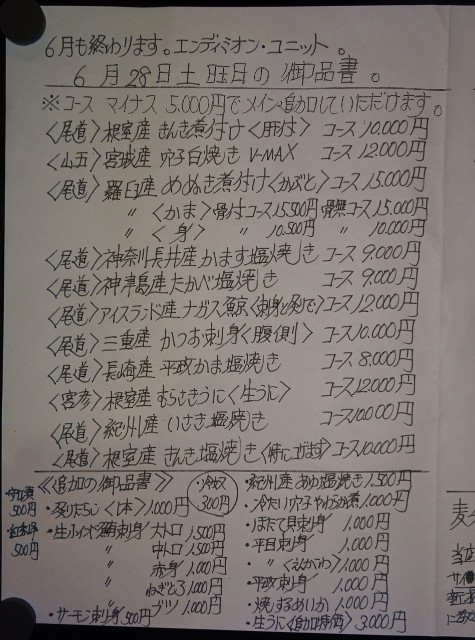 6月も終わります。エンディミオン・ユニット。
6月28日土旺日の御品書。
※コース マイナス 5.000円でメイン追加していただけます。
〈尾道〉根室産 きんき煮付け〈肝付〉 コース 10.000円
〈山五〉宮城産 穴子白焼き V-MAX コース 12.000円
〈尾道〉羅臼産 めぬき煮付け〈かぶと〉 コース 15.000円
〃 〈かま〉骨付コース15.500円 骨無コース 15.000円
〃 〈身〉 〃 10.500円 〃 10.000円
〈尾道〉神奈川長井産かます塩焼き コース 9.000円
〈尾道〉神津島産たかべ塩焼き コース 9.000円
〈尾道〉アイスランド産ナガス鯨〈刺身と〉 コース 12.000円
〈尾道〉三重産 かつお刺身〈腹側〉 コース 10.000円
〈尾道〉長崎産 平政かま塩焼き コース 8.000円
〈宮彦〉根室産 むらさきうに〈生うに〉 コース 12.000円
〈尾道〉紀州産 いさき塩焼き コース 10.000円
〈尾道〉根室産 きんき塩焼き コース 10.000円
《追加の御品書》
・冷奴 300円
500円
500円
・焼たらこ〈1本〉1.000円
・生インド鮪刺身 大トロ 1.500円
〃 中トロ 1.500円
〃 赤身 1.000円
〃 ねぎとろ 1.000円
〃 ブツ 1.000円
・サーモン刺身 500円
・紀州産 あゆ塩焼き 1.500円
・冷たい穴子やわらか煮 1.000円
・ほたて貝刺身 1.000円
・平目刺身 1.000円
・〃〈えんがわ〉 1.000円
・平政刺身 1.000円
・焼するめいか 1.000円
・生うに〈追加特価〉 3.000円